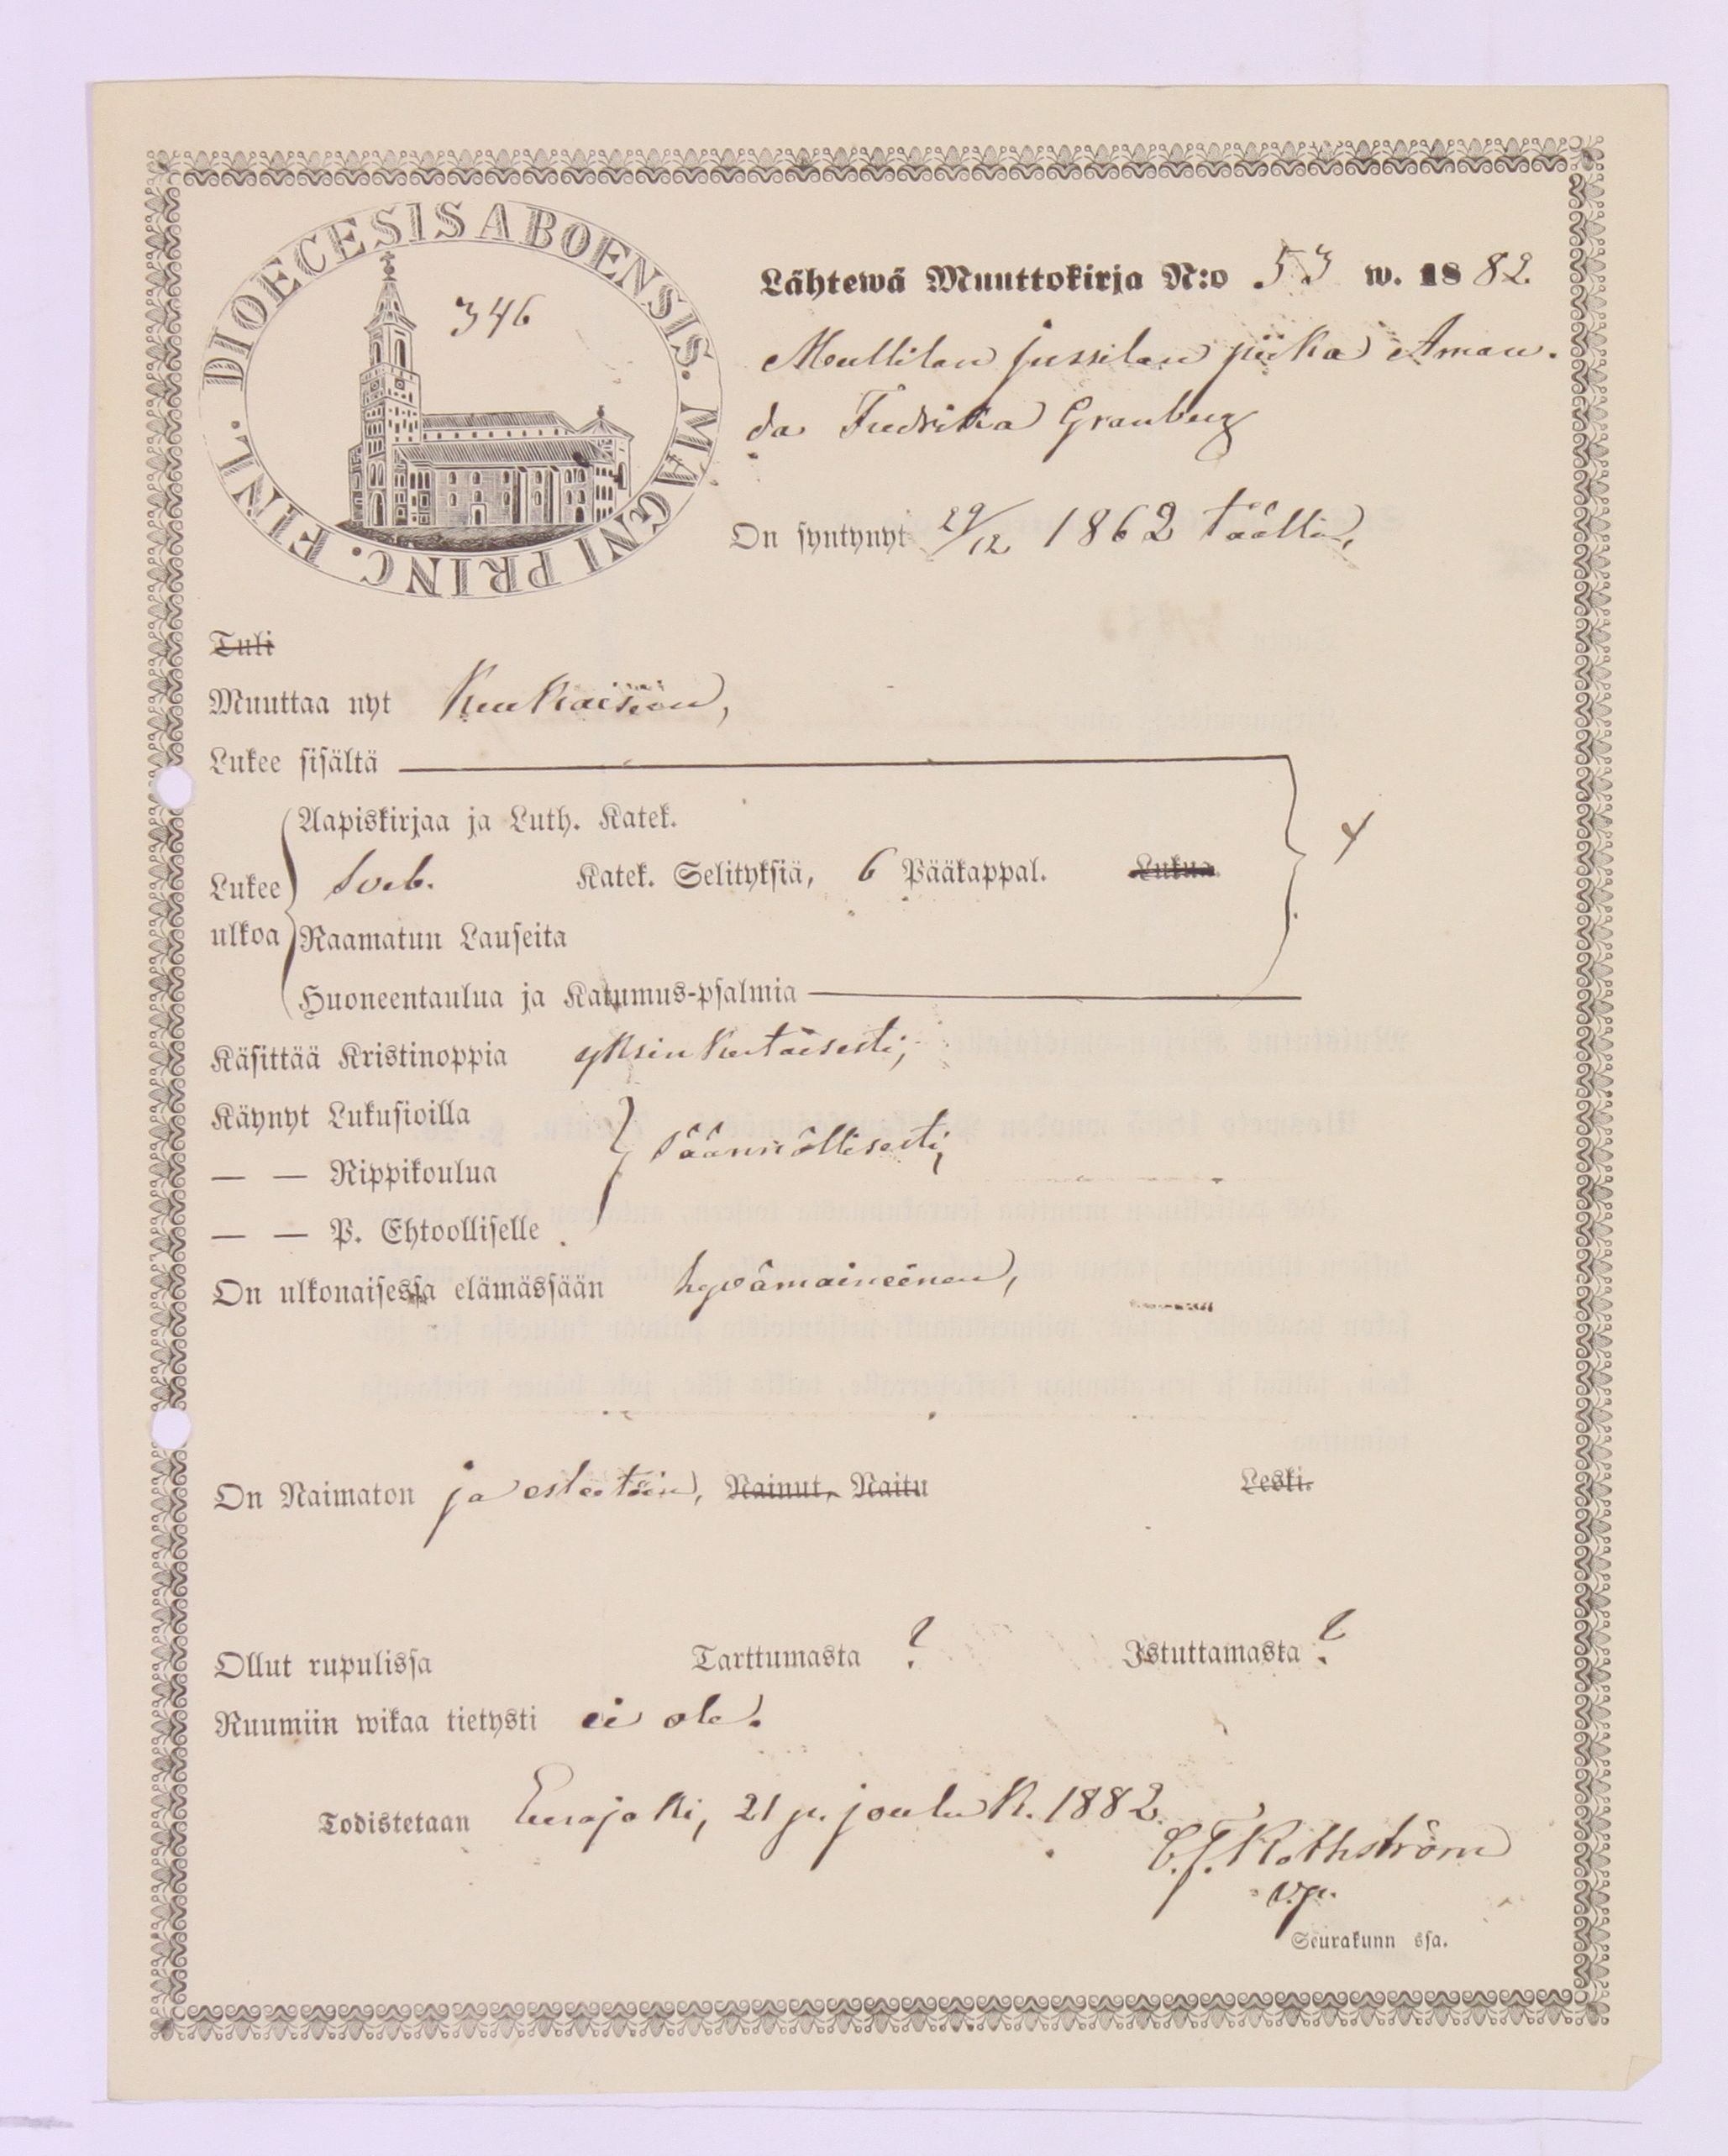 DIOECESIS ABOENSIS. MAGNI PRINC. FINL.
346
Lähtewä Muuttokirja N:o 53 w. 1882
Mullilan Jussilan piika Aman-
da Fredrika Granberg
On syntynyt 29/12 1862 täällä,
Tuli
Muuttaa nyt Kiukaisiin,
Lukee sisältä
Aapiskirjaa ja Luth. Katek.
Lukee ulkoa Sveb. Katek. Selityksiä, 6 Pääkappal. Lukua
Raamatun Lauseita
Huoneentaulua ja Katumus-psalmia
Käsittää Kristinoppia yksinkertaisesti,
Käynyt Lukusioilla
— — Rippikoulua säännöllisesti,
— — P. Ehtoolliselle
On ulkonaisessa elämässään hyvämaineinen,
On Naimaton ja esteetöin, Nainut, Naitu Leski.
Ollut rupulissa Tarttumasta ? Istuttamasta ?
Ruumiin wikaa tietysti ei ole.
Todistetaan Eurajoki, 21 p. jouluk. 1882.
C. F. Rothström
v.p.
Seurakunn ssa.